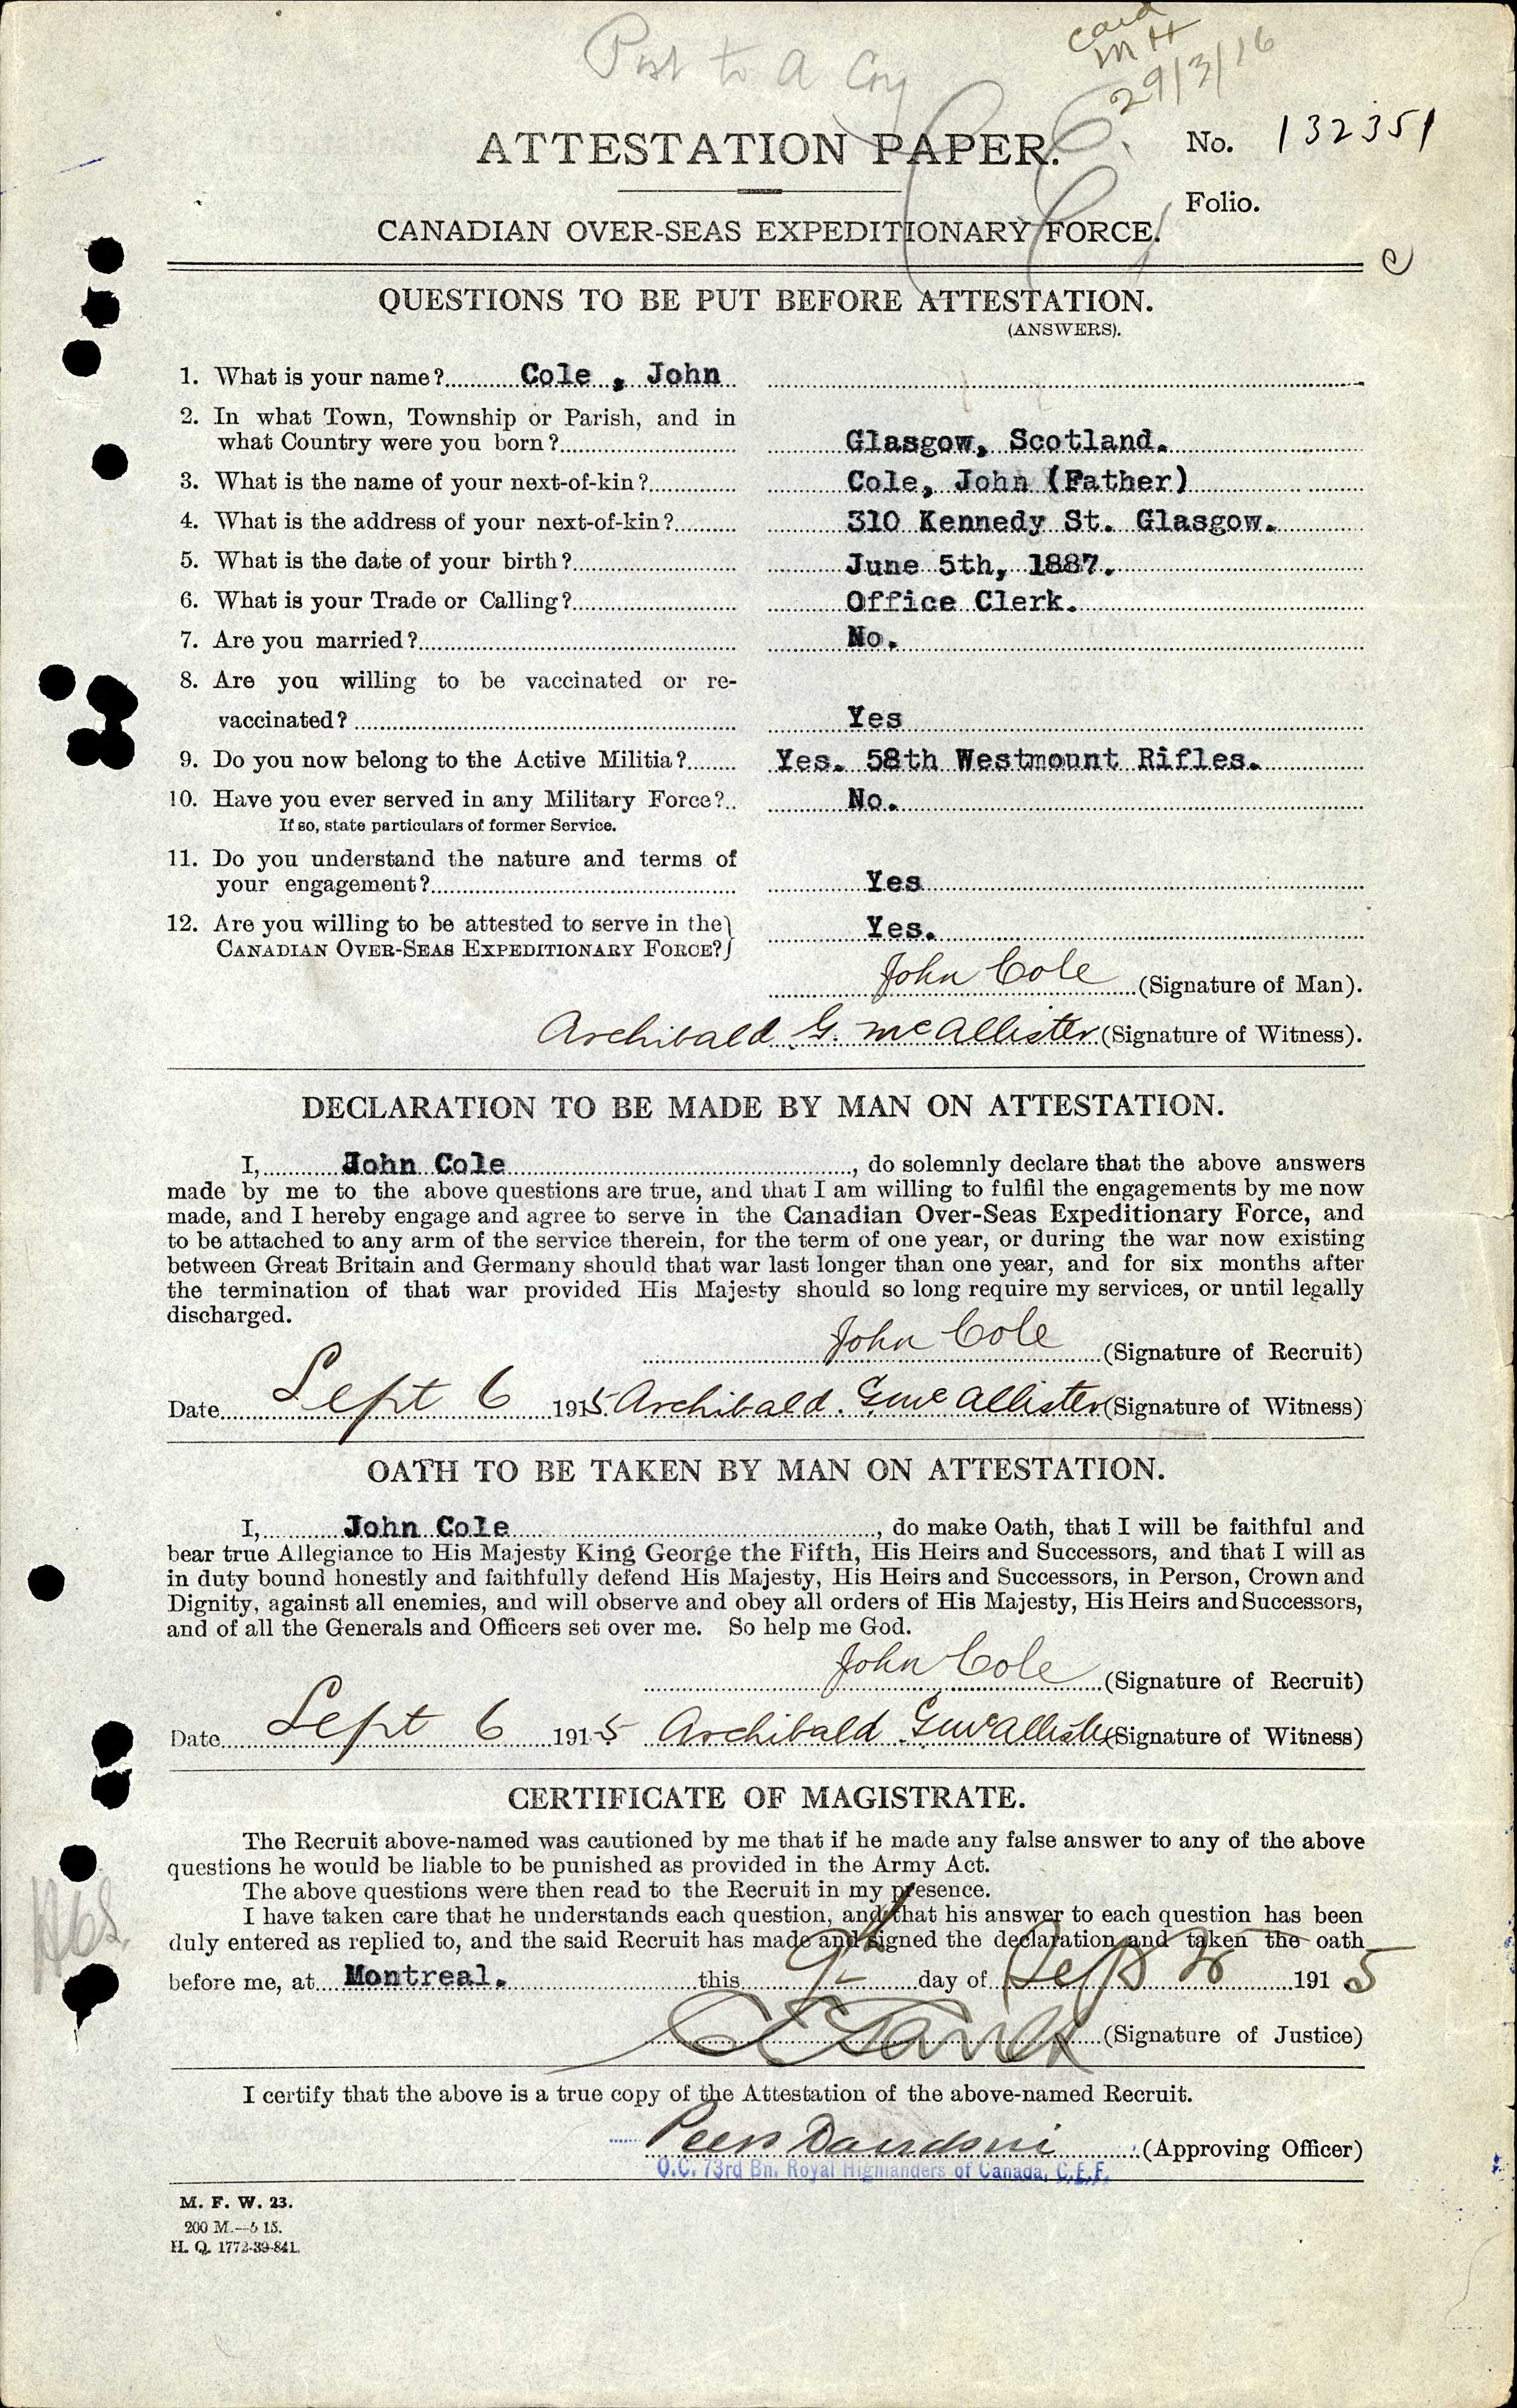 Post to A Coy
card
MH
29/3/16
ATTESTATION PAPER.
No. 132351
Folio.
CANADIAN OVER-SEAS EXPEDITIONARY FORCE.
C
QUESTIONS TO BE PUT BEFORE ATTESTATION.
(ANSWERS).
1. What is your name? Cole, John
2. In what Town, Township or Parish, and in
what Country were you born? Glasgow, Scotland.
3. What is the name of your next-of-kin? Cole, John (Father)
4. What is the address of your next-of-kin? 310 Kennedy St. Glasgow.
5. What is the date of your birth? June 5th, 1887.
6. What is your Trade or Calling? Office Clerk.
7. Are you married? No.
8. Are you willing to be vaccinated or re-
vaccinated? Yes
9. Do you now belong to the Active Militia? Yes. 58th Westmount Rifles.
10. Have you ever served in any Military Force? No.
If so, state particulars of former Service.
11. Do you understand the nature and terms of
your engagement? Yes
12. Are you willing to be attested to serve in the
CANADIAN OVER-SEAS EXPEDITIONARY FORCE? Yes.
John Cole (Signature of Man).
Archibald G. McAllister (Signature of Witness).
DECLARATION TO BE MADE BY MAN ON ATTESTATION.
I, John Cole, do solemnly declare that the above answers
made by me to the above questions are true, and that I am willing to fulfil the engagements by me now
made, and I hereby engage and agree to serve in the Canadian Over-Seas Expeditionary Force, and
to be attached to any arm of the service therein, for the term of one year, or during the war now existing
between Great Britain and Germany should that war last longer than one year, and for six months after
the termination of that war provided His Majesty should so long require my services, or until legally
discharged.
John Cole (Signature of Recruit)
Date Sept 6 1915. Archibald. G McAllister (Signature of Witness)
OATH TO BE TAKEN BY MAN ON ATTESTATION.
I, John Cole, do make Oath, that I will be faithful and
bear true Allegiance to His Majesty King George the Fifth, His Heirs and Successors, and that I will as
in duty bound honestly and faithfully defend His Majesty, His Heirs and Successors, in Person, Crown and
Dignity, against all enemies, and will observe and obey all orders of His Majesty, His Heirs and Successors,
and of all the Generals and Officers set over me. So help me God.
John Cole (Signature of Recruit)
Date Sept 6 1915 Archibald. G McAllister (Signature of Witness)
CERTIFICATE OF MAGISTRATE.
The Recruit above-named was cautioned by me that if he made any false answer to any of the above
questions he would be liable to be punished as provided in the Army Act.
The above questions were then read to the Recruit in my presence.
I have taken care that he understands each question, and that his answer to each question has been
duly entered as replied to, and the said Recruit has made and signed the declaration and taken the oath
before me, at Montreal. this 9th day of Sept 1915
(Signature of Justice)
I certify that the above is a true copy of the Attestation of the above-named Recruit.
Peers Davidson (Approving Officer)
O.C. 73rd Bn. Royal Highlanders of Canada, C.E.F.
M. F. W. 23.
200 M.—6 15.
H. Q. 1772-39-841.